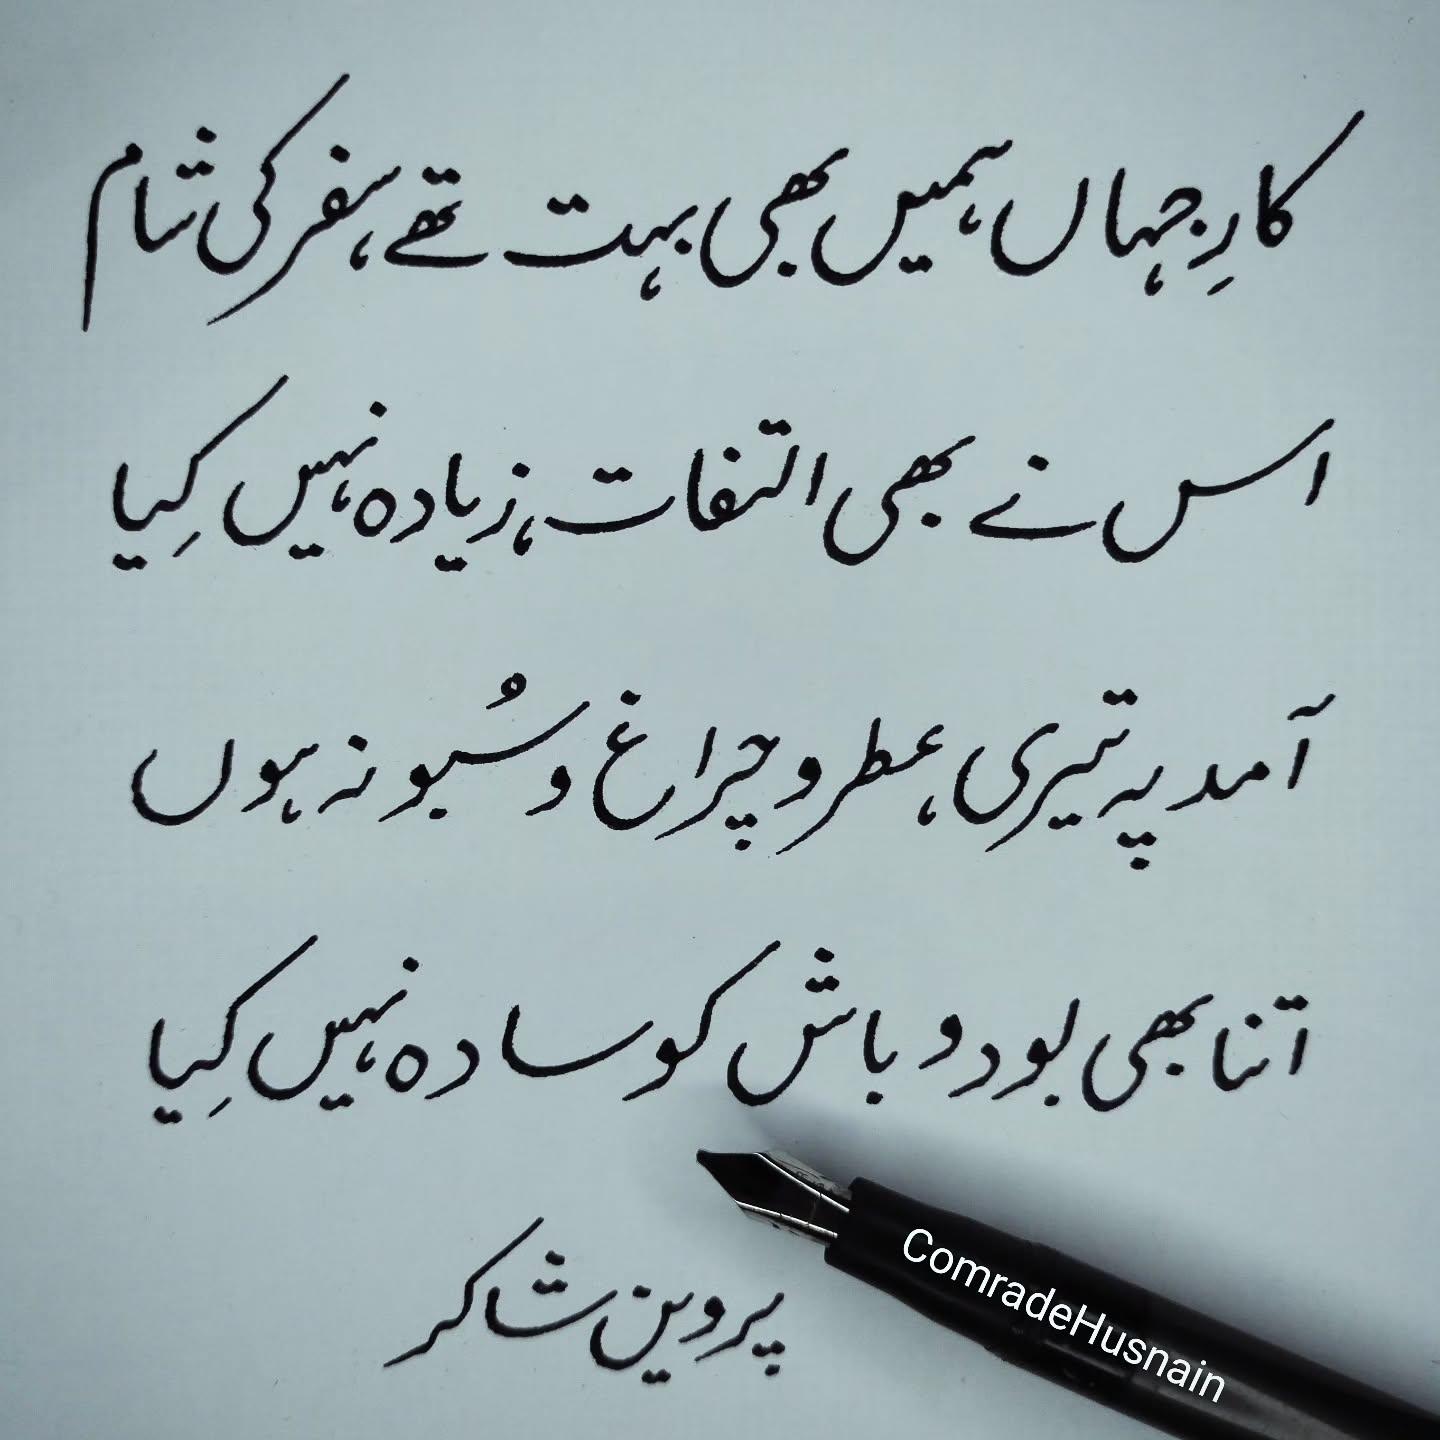 کارِ جہاں ہمیں بھی بہت تھے، سفر کی شام
اس نے بھی التفات، زیادہ نہیں کِیا
آمد پہ تیری، عطر و چراغ و سُبو نہ ہوں
اتنا بھی بود و باش کو سادہ نہیں کِیا
پروین شاکر
ComradeHusnain